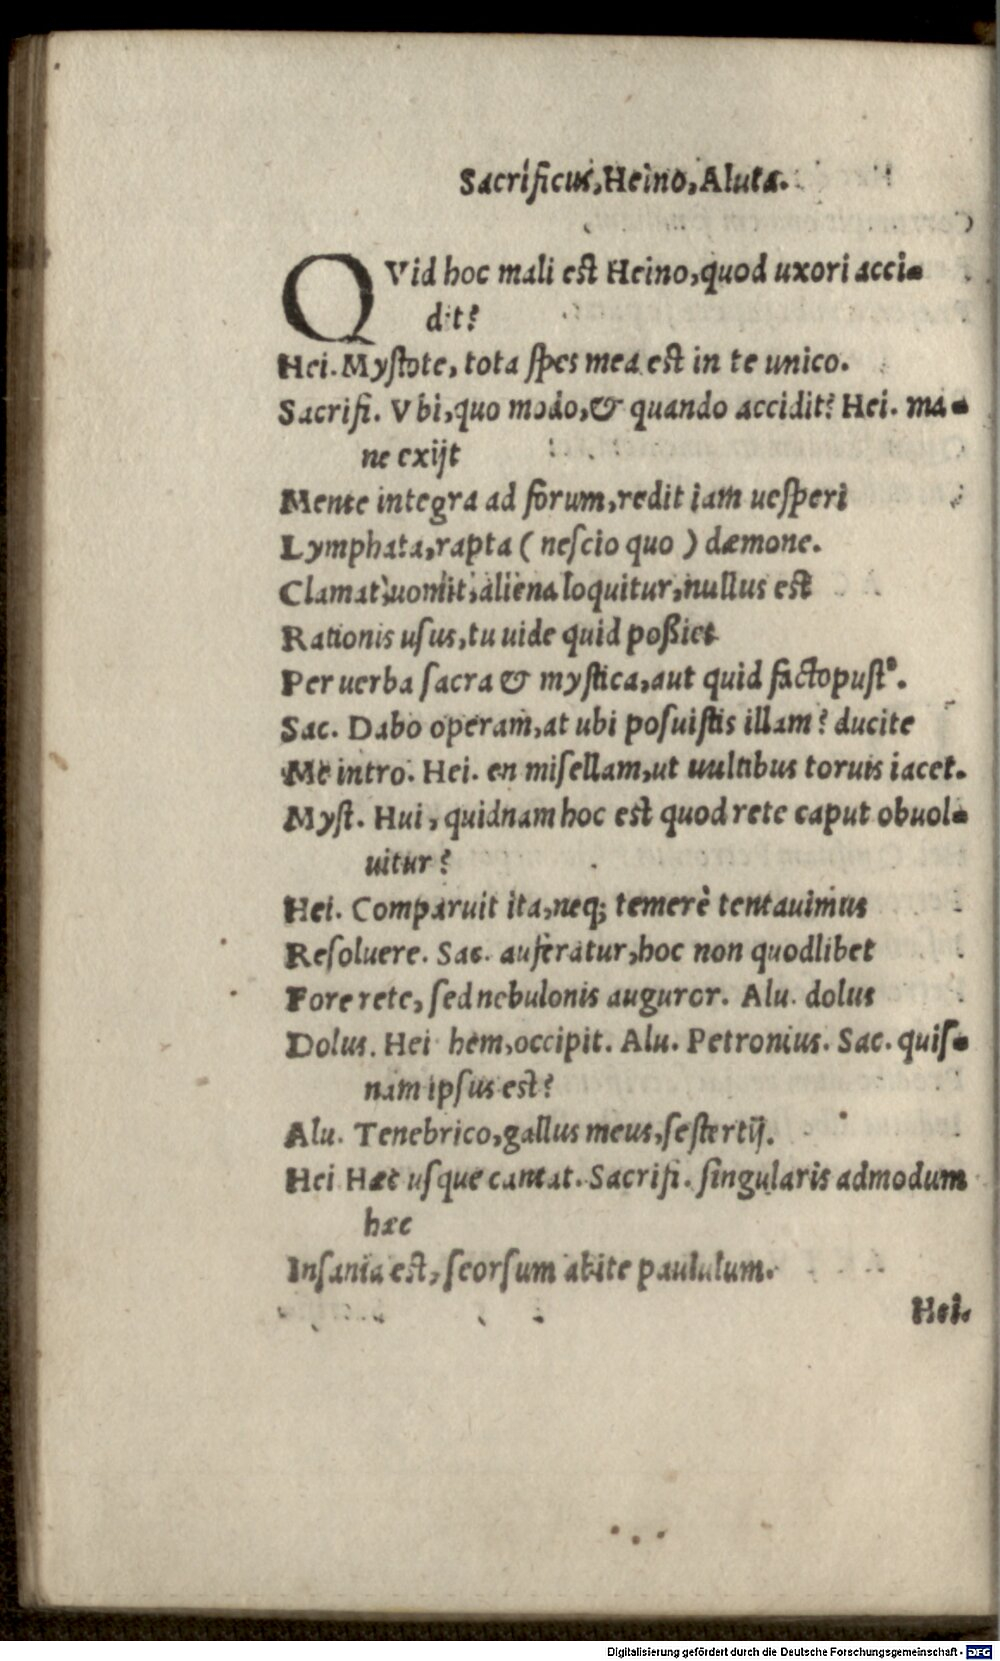 Sacrificus, Heino, Aluta.
QVid hoc mali est Heino, quod uxori acci-
dit?
Hei. Mystote, tota spes mea est in te unico.
Sacrifi. Vbi, quo modo, & quando accidit? Hei. ma-
ne exijt
Mente integra ad forum, redit iam uesperi
Lymphata, rapta ( nescio quo ) dæmone.
Clamat, uomit, aliena loquitur, nullus est
Rationis usus, tu uide quid poßiet
Per uerba sacra & mystica, aut quid factopust⁹.
Sac. Dabo operam, at ubi posuistis illam? ducite
Me intro. Hei. en misellam, ut uultibus toruis iacet.
Myst. Hui, quidnam hoc est quod rete caput obuol-
uitur?
Hei. Comparuit ita, neq; temerè tentauimus
Resoluere. Sac. auferatur, hoc non quodlibet
Fore rete, sed nebulonis auguror. Alu. dolus
Dolus. Hei hem, occipit. Alu. Petronius. Sac. quis-
nam ipsus est?
Alu. Tenebrico, gallus meus, sestertij.
Hei Hæc usque cantat. Sacrifi. singularis admodum
hæc
Insania est, seorsum abite paululum.
Hei.
Digitalisierung gefördert durch die Deutsche Forschungsgemeinschaft - DFG